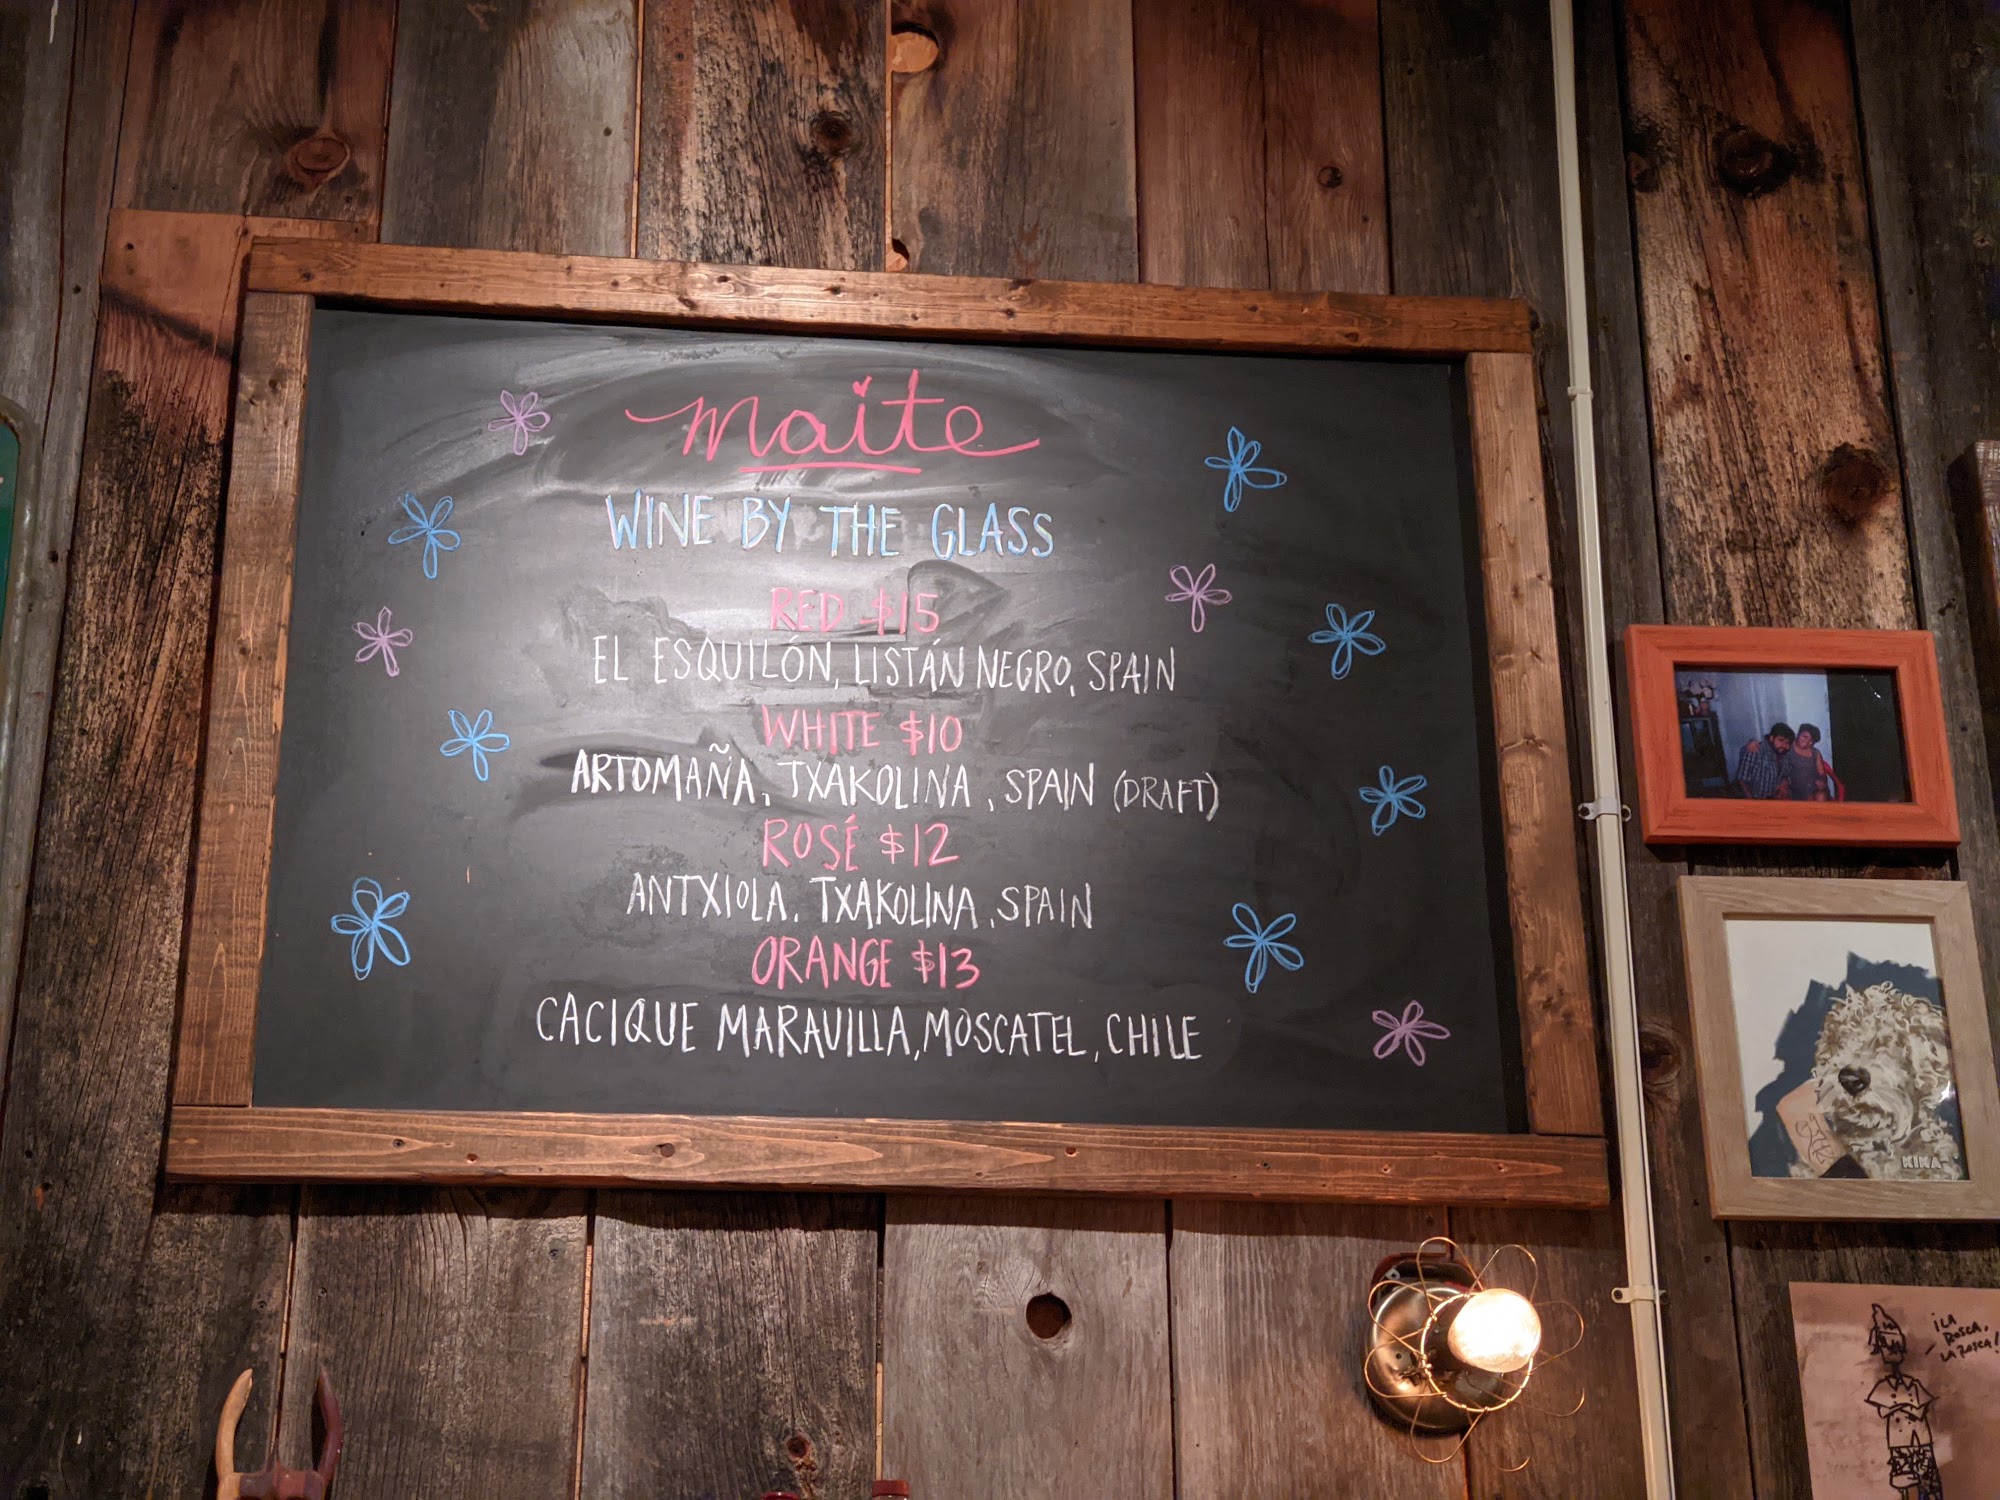 maite
WINE BY THE GLASS
RED $15
EL ESQUILÓN, LISTÁN NEGRO, SPAIN
WHITE $10
ARTOMAÑA, TXAKOLINA, SPAIN (DRAFT)
ROSÉ $12
ANTXIOLA, TXAKOLINA, SPAIN
ORANGE $13
CACIQUE MARAVILLA, MOSCATEL, CHILE
KIKA
¡LA
ROSCA,
LA ROSCA!